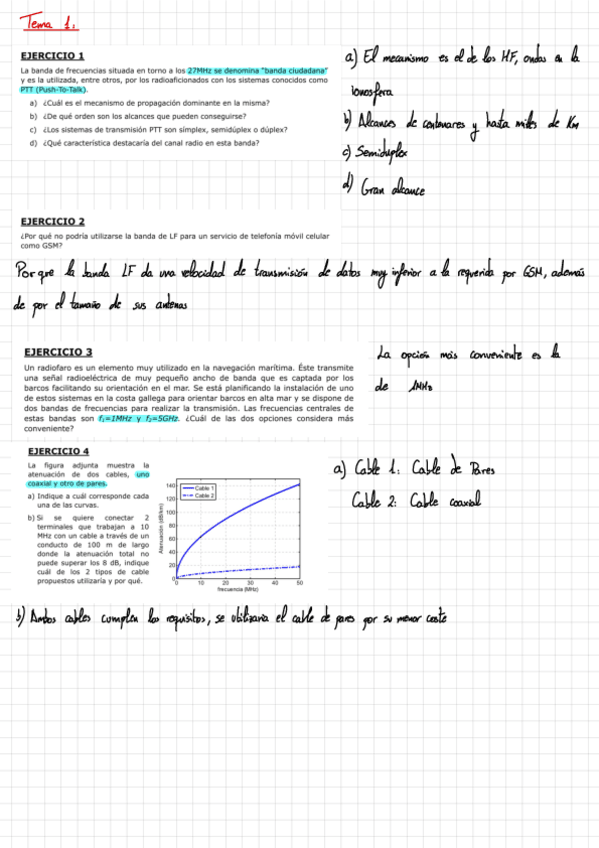 Tema 1.
EJERCICIO 1
La banda de frecuencias situada en torno a los 27MHz se denomina "banda ciudadana"
y es la utilizada, entre otros, por los radioaficionados con los sistemas conocidos como
PTT (Push-To-Talk).
a) ¿Cuál es el mecanismo de propagación dominante en la misma?
b) ¿De qué orden son los alcances que pueden conseguirse?
c) ¿Los sistemas de transmisión PTT son símplex, semidúplex o dúplex?
d) ¿Qué característica destacaría del canal radio en esta banda?
a) El mecanismo es el de los HF, ondas en la
ionosfera
b) Alcances de centenares y hasta miles de Km
c) Semiduplex
d) Gran alcance
EJERCICIO 2
¿Por qué no podría utilizarse la banda de LF para un servicio de telefonía móvil celular
como GSM?
Porque la banda LF da una velocidad de transmisión de datos muy inferior a la requerida por GSM, además
de por el tamaño de sus antenas
EJERCICIO 3
Un radiofaro es un elemento muy utilizado en la navegación marítima. Éste transmite
una señal radioeléctrica de muy pequeño ancho de banda que es captada por los
barcos facilitando su orientación en el mar. Se está planificando la instalación de uno
de estos sistemas en la costa gallega para orientar barcos en alta mar y se dispone de
dos bandas de frecuencias para realizar la transmisión. Las frecuencias centrales de
estas bandas son f1=1MHz y f2=5GHz. ¿Cuál de las dos opciones considera más
conveniente?
La opción más conveniente es la
de 1MHz
EJERCICIO 4
La figura adjunta muestra la
atenuación de dos cables, uno
coaxial y otro de pares.
a) Indique a cuál corresponde cada
una de las curvas.
b) Si se quiere conectar 2
terminales que trabajan a 10
MHz con un cable a través de un
conducto de 100 m de largo
donde la atenuación total no
puede superar los 8 dB, indique
cuál de los 2 tipos de cable
propuestos utilizaría y por qué.
Cable 1
Cable 2
Atenuación (dB/km)
140
120
100
80
60
40
20
0
0 10 20 30 40 50
frecuencia (MHz)
a) Cable 1: Cable de Pares
Cable 2: Cable coaxial
b) Ambos cables cumplen los requisitos, se utilizaria el cable de pares por su menor coste